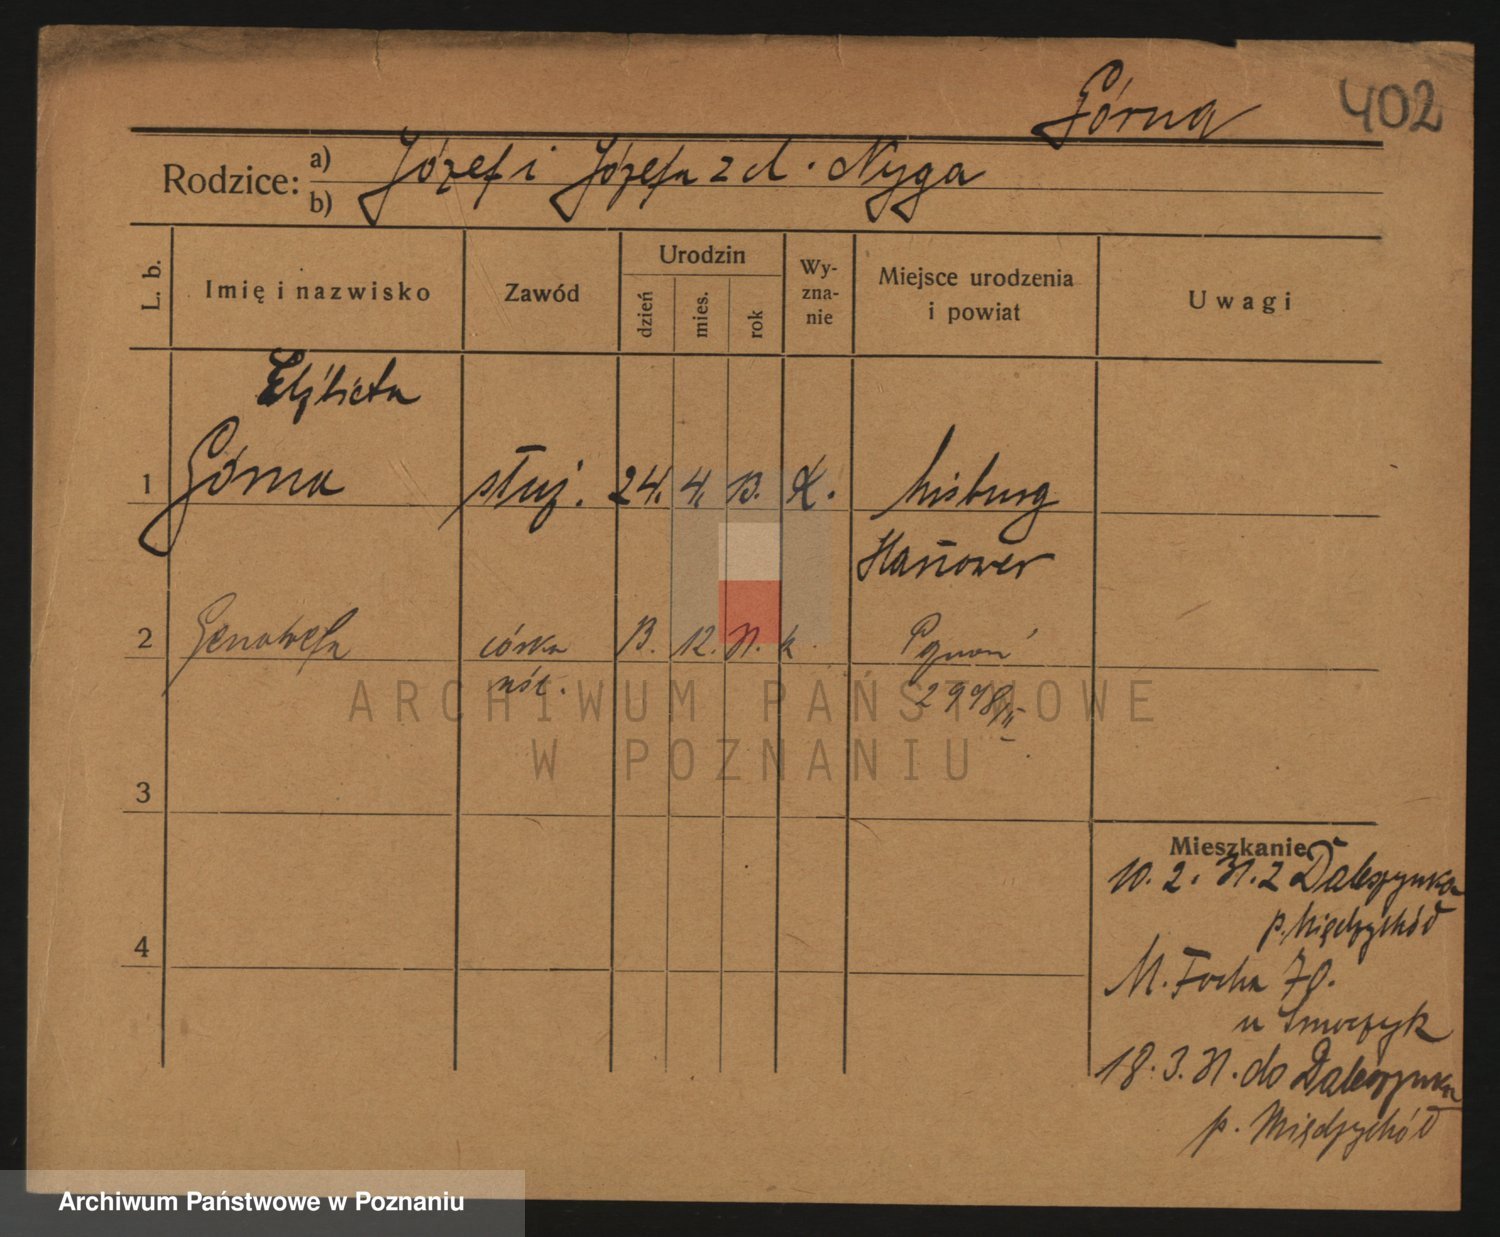 Górna
402
Rodzice: a) Józef i Józefa z d. Nyga
b)
L. b.
Imię i nazwisko
Zawód
Urodzin
dzień
mies.
rok
Wy-
zna-
nie
Miejsce urodzenia
i powiat
Uwagi
Elżbieta
1 Górna służ. 24. 4. 13. K. Misburg
Hannower
2 Genowefa córka 13. 12. 31. k. Poznań
nśl. 2998/II
3
4
Mieszkanie
10. 2. 31. z Daleszynka
p. Międzychód
M. Focha 70.
u Smoczyk
18. 3. 31. do Daleszynka
p. Międzychód
ARCHIWUM PAŃSTWOWE
W POZNANIU
Archiwum Państwowe w Poznaniu